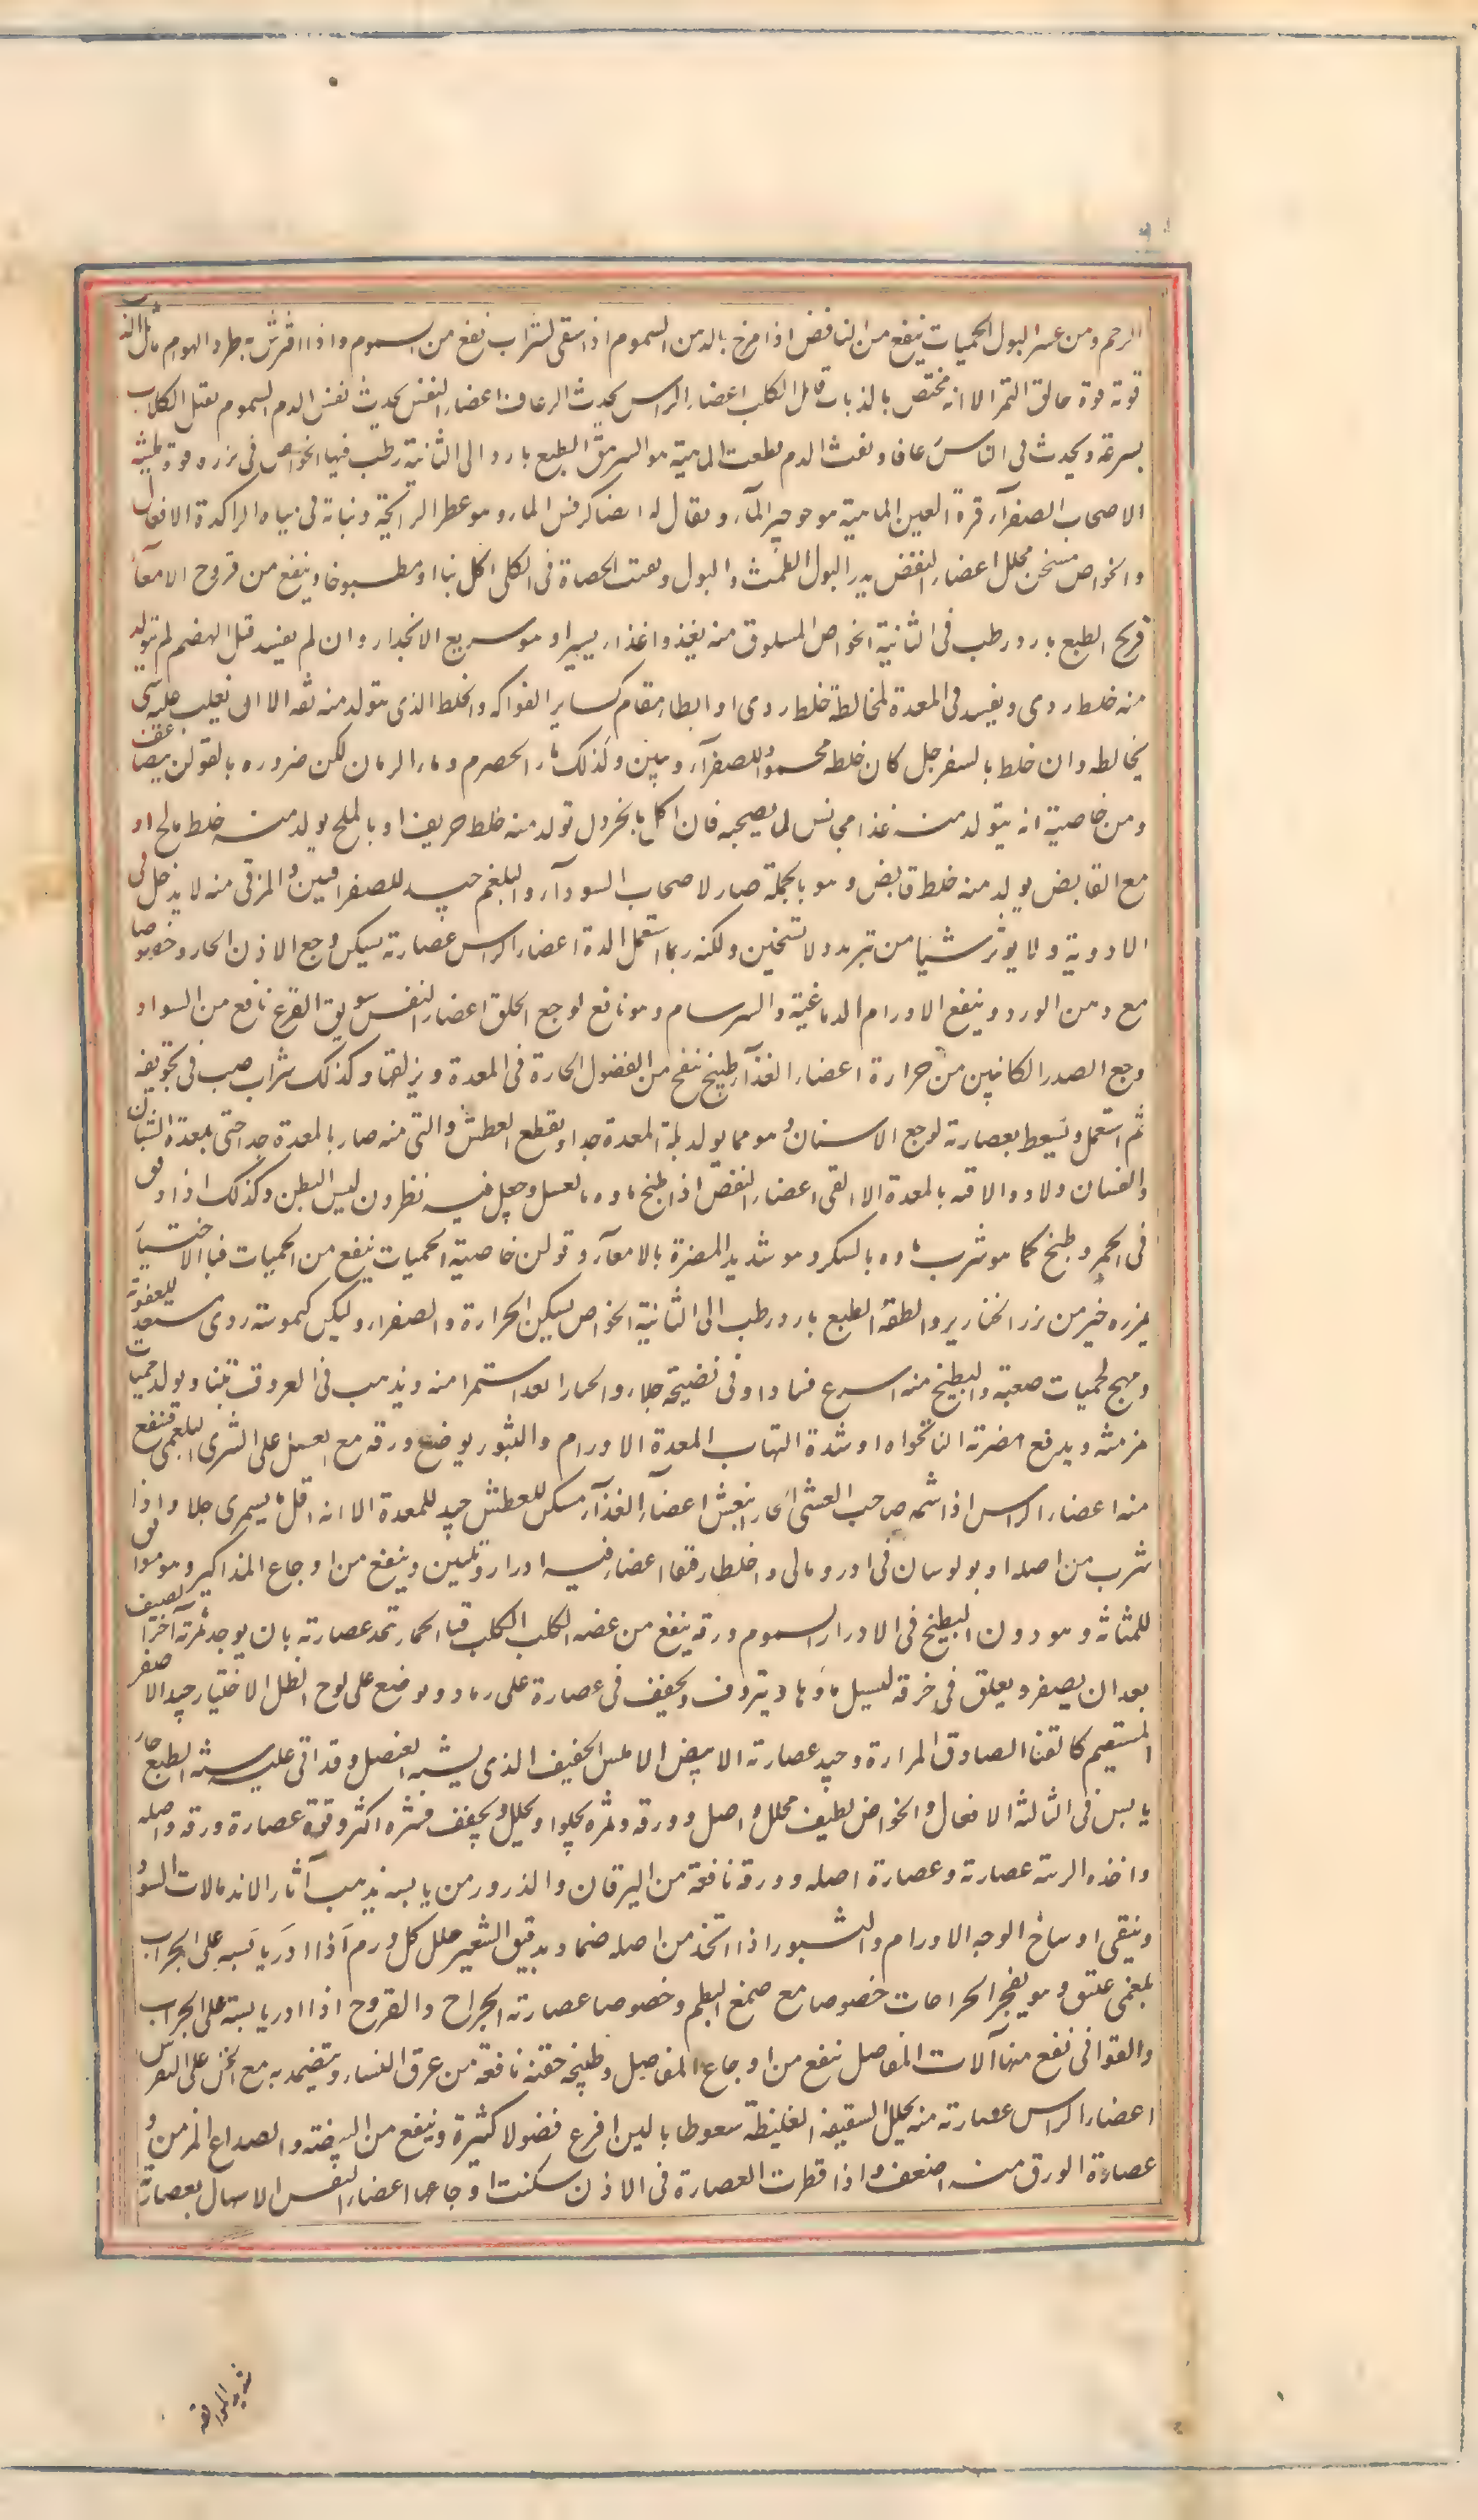 الرحم ومن عسر البول الحميات ينفع من النافض اذا مرخ بالدمن السموم اذا سقى لشراب نفع من السموم واذا افترش به طرد الهوام
قوته قوة خانق النمر الا انه مختص بالذباب قاتل الكلب اعضاء الراس يحدث الرعاف اعضاء النفس يحدث نفس الدم السموم يقتل الكلاب
بسرعة ويحدث فى الناس رعافا ونفث الدم قطعت الماهية هو السرمق الطبع بارد الى الثانية رطب فيها الخواص فى بزره قوة ملينة
الاصحاب الصفرآء قرة العين الماهية هو جرجير المآء ويقال له ايضا كرفس الماء وهو عطر الرائحة ونباته فى مياه الراكدة الافعال
والخواص مسخن محلل اعضاء النفض يدر البول الطمث والبول ويفتت الحصاة فى الكلى اكل نيا او مطبوخا وينفع من قروح الامعآء
قرع الطبع بارد رطب فى الثانية الخواص المسلوق منه يغذو اغذاء يسيرا وهو سريع الانحدار وان لم يفسد قبل الهضم لم يتولد
منه خلط ردى ويفسد فى المعدة لمخالطة خلط ردى او ابطاء مقام كسائر الفواكه والخلط الذى يتولد منه تفه الا ان يغلب عليه شى
يخالطه وان خلط بالسفرجل كان خلطه محمودا للصفرآء وبين وكذلك ماء الحصرم وماء الرمان لكن ضروره بالقولن يضاعف
ومن خاصيته انه يتولد منه غذا مجانس لما يصحبه فان اكل بالخردل تولد منه خلط حريف او بالملح يولد منه خلط مالح او
مع القابض يولد منه خلط قابض وهو بالجملة ضار لاصحاب السودآء والبلغم جيد للصفرافيين والمزقى منه لا يدخل فى
الادوية ولا يؤثر شيا من تبريد ولا تسخين ولكنه ربما استعمل الدة اعضاء الراس عصارته يسكن وجع الاذن الحار وخصوصا
مع دهن الورد وينفع الاورام الدماغية والسرسام وهو نافع لوجع الحلق اعضاء النفس سويق القرع نافع من السواد
وجع الصدر الكاينين من حرارة اعضاء الغذآء طبيخ ينفع من الفضول الحارة فى المعدة ويزلقها وكذلك شراب صب فى تجويفه
ثم استعمل ويسعط بعصارته لوجع الاسنان وهو مما يولد بلة المعدة جدا ويقطع العطش والتى منه ضار بالمعدة جدا حتى بمعدة الشبان
والفتيان ولا دواء لافته بالمعدة الا القى اعضاء النفض اذا طبخ ماوه بالعسل وجعل فيه نطرون لين البطن وكذلك اذا دفن
فى الجمر وطبخ كما هو شرب ماوه بالسكر وهو شديد المضرة بالامعآء وقولن خاصية الحميات ينفع من الحميات قثا الاختيار
بزره خير من بزر الخناريرو الطفة الطبع بارد رطب الى الثانية الخواص يسكن الحرارة والصفراء وليكن كيموسته ردى مستعد للعفونة
ومهيج لحميات صعبة والبطيخ منه اسرع فسادا وفى نضيجه جلاء والحمار ابعد استمرا منه ويذهب فى العروق تيبنا ويولد حميات
مزمنة ويدفع مضرته الناتخواه او شدة التهاب المعدة الاورام والبثور يوضع ورقه مع العسل على الشرى البلغمى فنفع
منه اعضاء الراس اذا شمه صاحب العشى الحار انعش اعضآء الغذآء مسكن للعطش جيد للمعدة الا انه اقل ما يستمرى جلا واذا
شرب من اصله اوبولوسان فى ادرومالى واخلطا رقيقا اعضاء فيه ادرار وتليين وينفع من اوجاع المذاكير وموافق
للمثانة وهو دون البطيخ فى الادرار السموم ورقه ينفع من عضه الكلب الكلب قثا الحمار تحد عصارته بان يوجد ثمرته آخر الصيف
بعد ان يصفر ويعلق فى خرقة ليسيل ماوها ويتروف ويجفف فى عصارة على رماد ويوضع على لوح الظل الاختيار جيد الاصفر
المستقيم كالقثا الصادق المرارة وجيد عصارته الابيض الاملس الخفيف الذى يشبه العنصل وقد اتى عليه سنه الطبع حار
يابس فى الثالثه الافعال والخواص لطيف محلل واصل وورقه وثمره يجلوا ويحلل ويجفف قشره اكثر وقوة عصارة ورقه واصله
واخذه الرينة عصارته وعصارة اصله وورقه نافعة من اليرقان والذرور من يابسه يذهب آثار الاندمالات السود
وينقى اوساخ الوجه الاورام والبثور اذا اتخذ من اصله ضماد بدقيق الشعير حلل كل ورم اذا ادر يابسه على الجراب
بلغمى عتيق وهو يفجر الجراحات خصوصا مع صمغ البطم وخصوصا عصارته الجراح والقروح اذا ادر يابسته على الجراب
والقوافى نفع منها آلات المفاصل ينفع من اوجاع المفاصل وطبيخه حقنة نافعة من عرق النساء ويتضمد به مع الخل على النقرس
اعضاء الراس عصارته منه يحلل الشقيقة الغليظة سعوطا بالبن افرغ فضولا كثيرة وينفع من البيضة والصداع المزمن و
عصارة الورق منه اضعف واذا قطرت العصارة فى الاذن سكنت اوجاعها اعضاء النفس الاسهال بعصارته